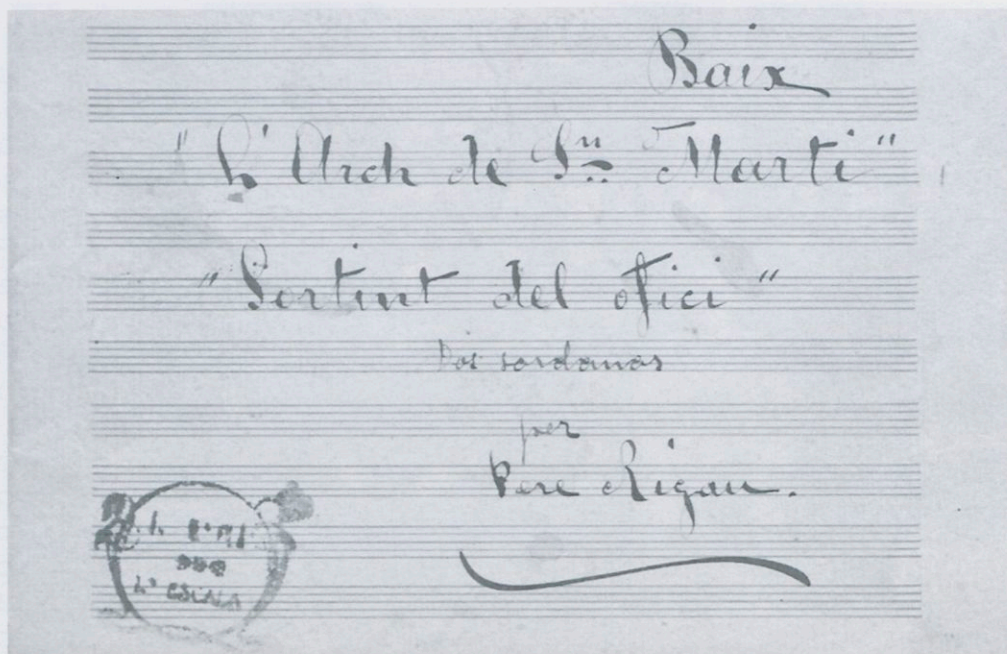 Baix
"L'Arch de Sn. Marti"
"Sortint del ofici"
Dos sardanas
per
Pere Rigau.
L'ESCALA